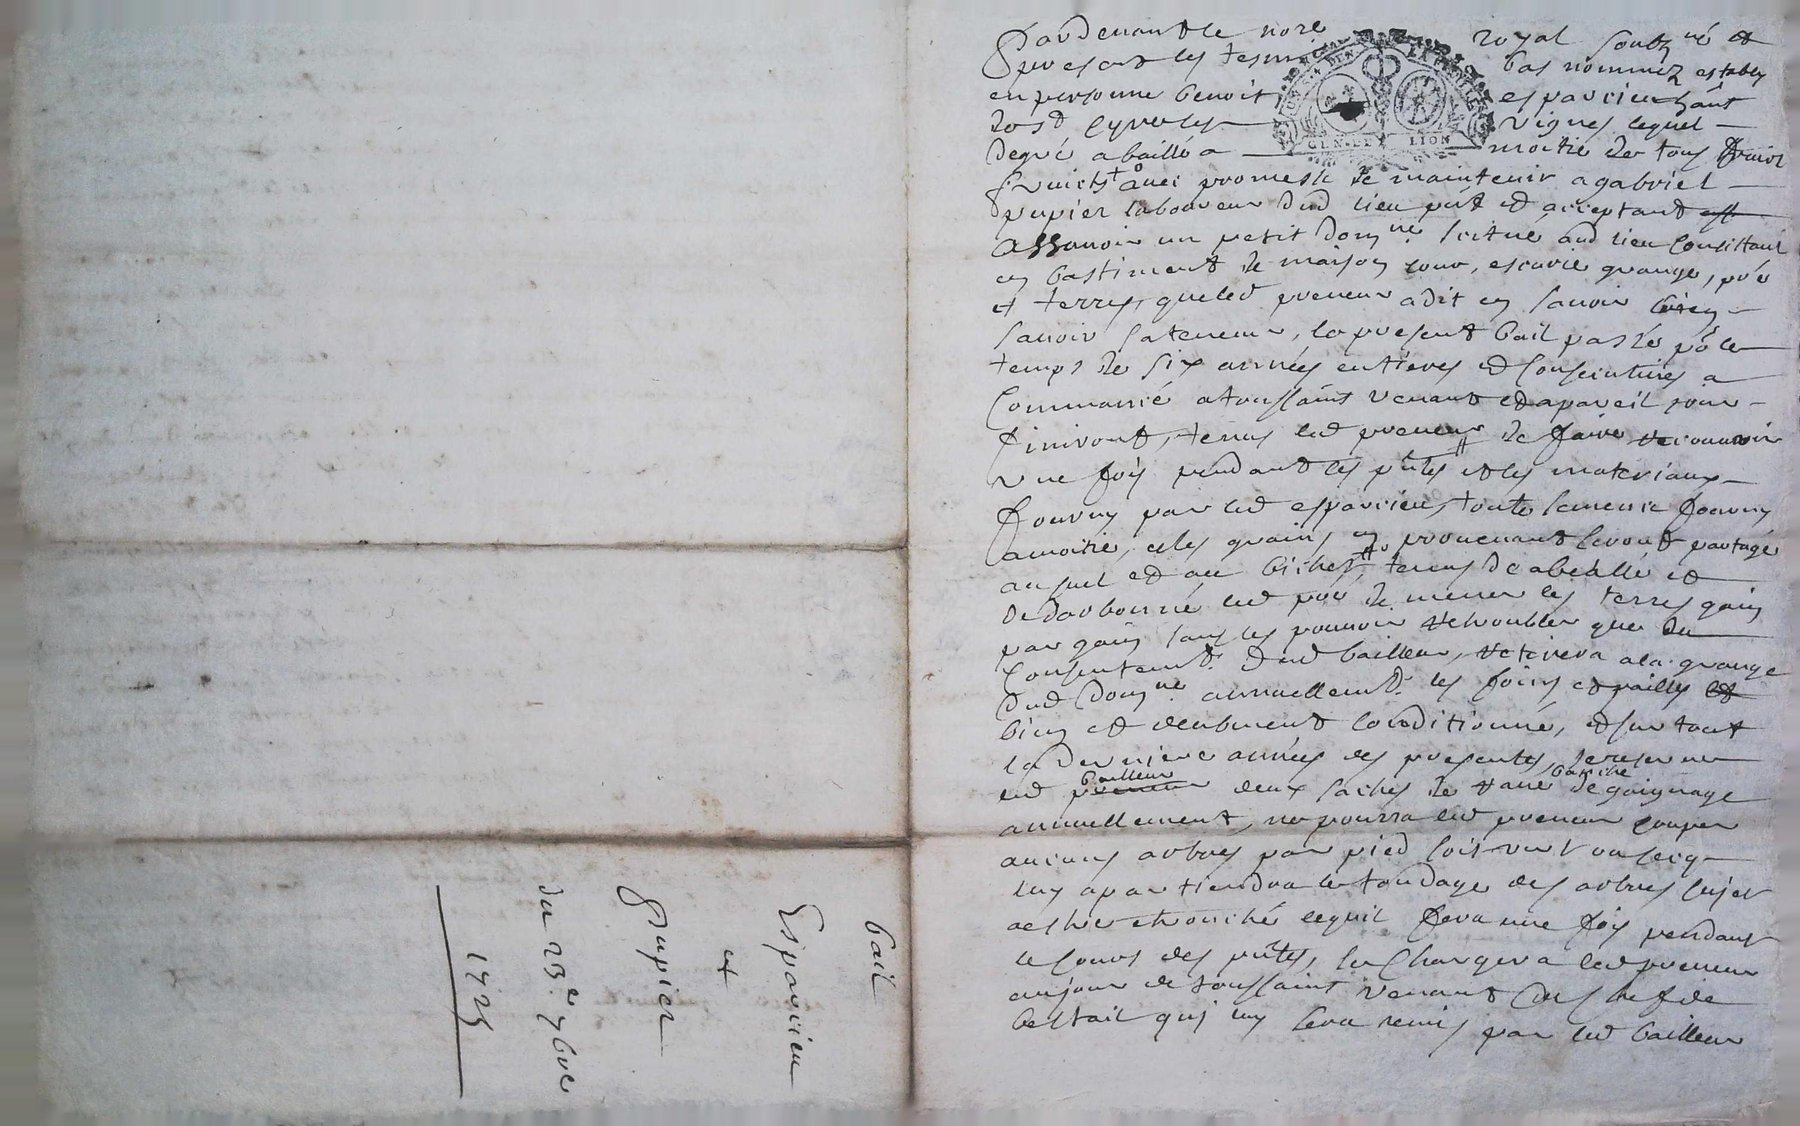 Pardevant le no.re royal soubz.né et
presents les tesmoins bas nommez estably
en personne benoit esparcieu habitant
vignes lequel
degré a baillé a moitié de tous
fruicts avec promesse de maintenir a gabriel
pupier laboureur dud lieu pnt et acceptant
assavoir un petit dom.ne scitué aud lieu consistant
en bastiment de maison cour, escurie grange, pré
et terres, que led preneur a dit en savoir bien
savoir sa teneur, le present bail passé po.r le
temps de six années entieres et consecutives a
commancé a toussaint venant et a pareil jour
finiront, tenu led preneur de faire recouvrir
une fois pendant les pntes et les materiaux
fourny par led esparcieu, toute semence fourny
a moitié, et les grains en provenant seront partagé
au suel et au bichet, tenu de
led pré de mener les terres gain
par gain sans les pouvoir retroubler que du
consentem.t dud bailleur, retirera a la grange
dud dom.ne annuellem.t les foins et pailles
bien et deubment conditionné, et sur tout
la derniere années des presentes, se reserve
led bailleur deux saches de rave de gaignage
annuellement, ne pourra led preneur couper
aucuns arbres par pied soit vert ou secq
luy apartiendra le tondage des arbres sujet
a estre etronché lequil fera une fois pendant
le cours des pntes, se chargera led preneur
au jour de toussaint venant du
bestail quj luy sera remis par led bailleur
bail
Esparcieu
et
Pupier
du 23.e 7bre
1725
GEN. DE LION